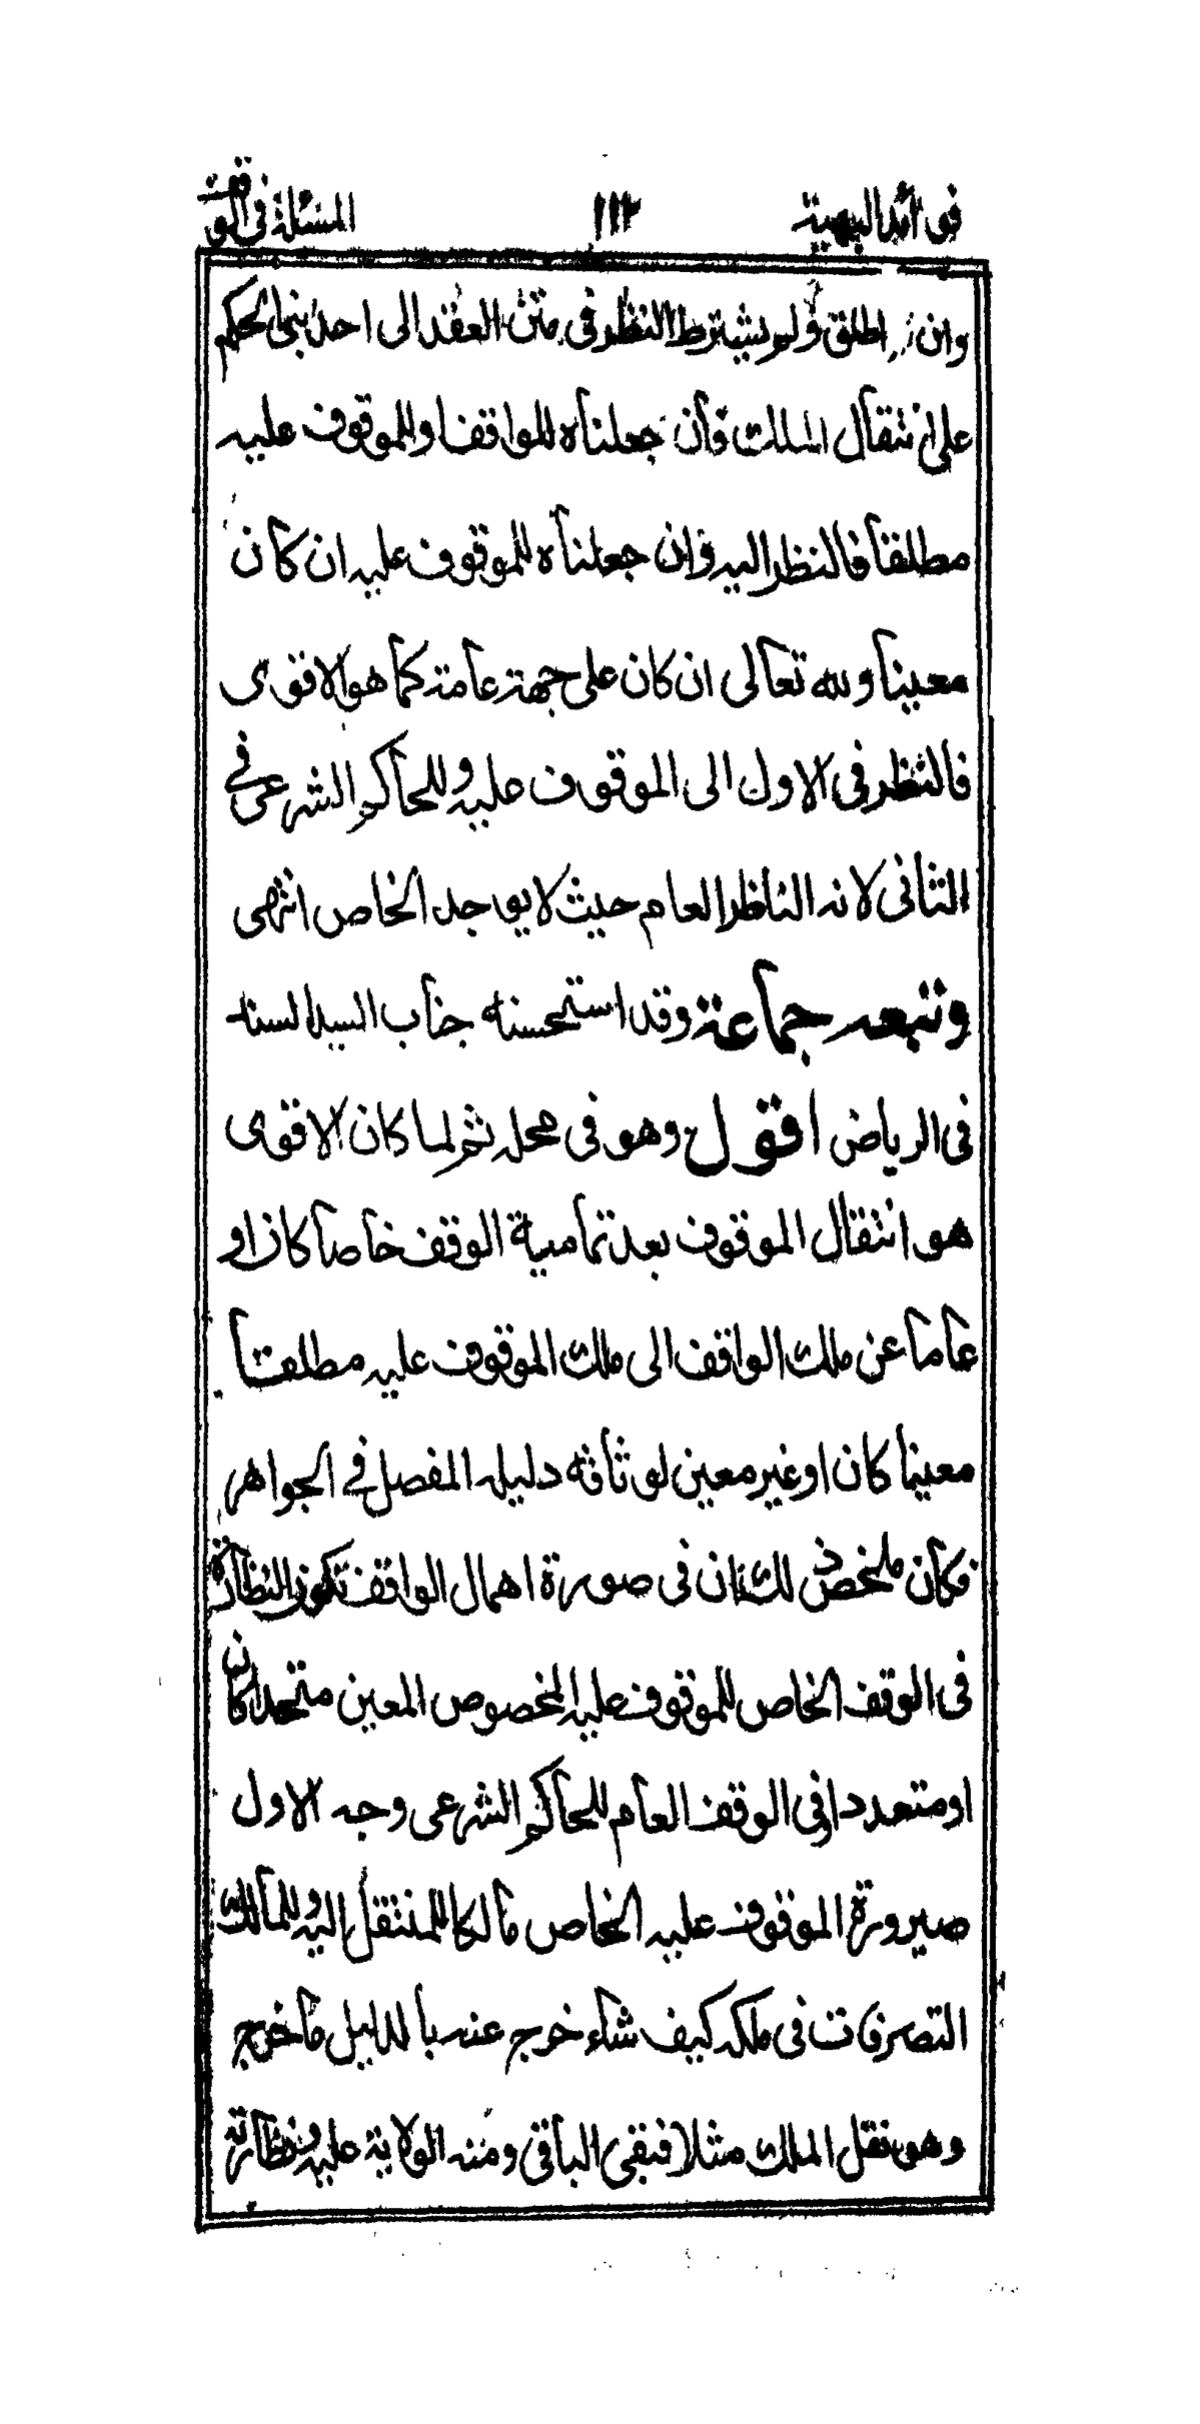 فوائد البهية ١١٢ المسئلة في الوقف
وان اطلق ولم يشترط النظر فى متن العقد الى احد بنى الحكم
على انتقال الملك فان جعلناه للواقف او للموقوف عليه
مطلقا فالنظر اليه وان جعلناه للموقوف عليه ان كان
معينا و لله تعالى ان كان على جهة عامة كما هو الاقوى
فالنظر فى الاول الى الموقوف عليه و للحاكم الشرعى فے
الثانى لانه الناظر العام حيث لا يوجد الخاص انتهى
وتبعه جماعة وقد استحسنه جناب السيد السند
فى الرياض اقول وهو فى محله ثم لما كان الاقوى
هو انتقال الموقوف بعد تمامية الوقف خاصا كان او
عاما عن ملك الواقف الى ملك الموقوف عليه مطلقا
معينا كان او غير معين لوثاقة دليله المفصل فے الجواهر
فكان ملخص ذلك ان فى صورة اهمال الواقف تكون النظارة
فى الوقف الخاص للموقوف عليه المخصوص المعين متحدا كان
او متعددا وفى الوقف العام للحاكم الشرعى وجه الاول
صيرورة الموقوف عليه الخاص مالكا للمنتقل اليه و للمالك
التصرفات فى ملكه كيف شاء خرج عنه بالدليل ما خرج
وهو نقل الملك مثلا فبقى الباقى ومنه الولاية عليه ونظارته